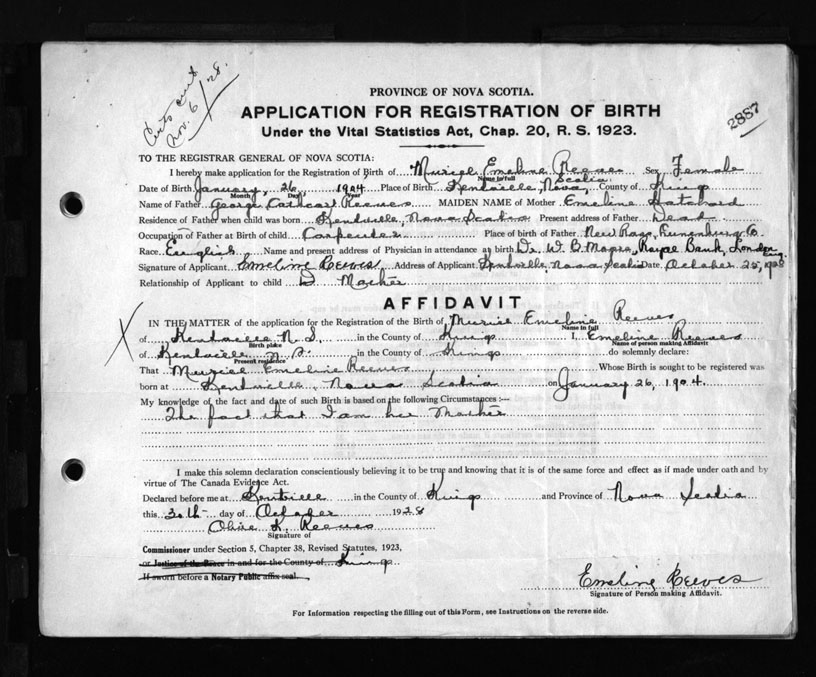 Certs sent
Nov. 6/28.
2887
PROVINCE OF NOVA SCOTIA.
APPLICATION FOR REGISTRATION OF BIRTH
Under the Vital Statistics Act, Chap. 20, R. S. 1923.
TO THE REGISTRAR GENERAL OF NOVA SCOTIA:
I hereby make application for the Registration of Birth of Muriel Emeline Reeves Sex Female
Name in full
Date of Birth January, 26 1904 Place of Birth Kentville, Nova Scotia County of Kings
Month Day Year
Name of Father George Cathcart Reeves MAIDEN NAME of Mother Emeline
Residence of Father when child was born Kentville, Nova Scotia Present address of Father Dead
Occupation of Father at Birth of child Carpenter Place of birth of Father New Ross, Lunenburg Co.
Race English Name and present address of Physician in attendance at birth Dr. W. B. Royal Bank, London Eng.
Signature of Applicant Emeline Reeves Address of Applicant Kentville Nova Scotia Date October 25, 1928
Relationship of Applicant to child Mother
AFFIDAVIT
IN THE MATTER of the application for the Registration of the Birth of Muriel Emeline Reeves
Name in full
of Kentville N. S. in the County of Kings I, Emeline Reeves
Birth place Name of person making Affidavit
of Kentville N. S. in the County of Kings do solemnly declare:
Present residence
That Muriel Emeline Reeves Whose Birth is sought to be registered was
born at Kentville, Nova Scotia on January 26, 1904.
My knowledge of the fact and date of such Birth is based on the following Circumstances :—
The fact that I am her Mother
I make this solemn declaration conscientiously believing it to be true and knowing that it is of the same force and effect as if made under oath and by
virtue of The Canada Evidence Act.
Declared before me at Kentville in the County of Kings and Province of Nova Scotia
this 30th day of October 1928
Olive K. Reeves
Signature of
Commissioner under Section 5, Chapter 38, Revised Statutes, 1923,
or Justice of the Peace in and for the County of Kings
If sworn before a Notary Public affix seal.
Emeline Reeves
Signature of Person making Affidavit.
For Information respecting the filling out of this Form, see Instructions on the reverse side.